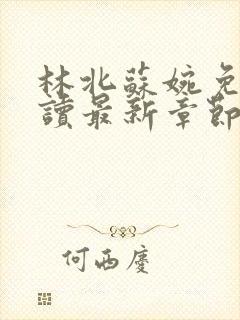 林北蘇婉免
讀最新章節
何西慶